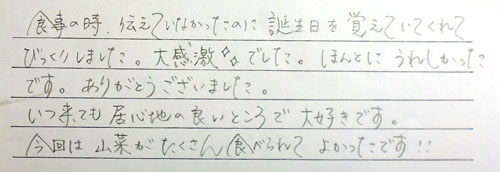 食事の時、伝えていなかったのに誕生日を覚えていてくれて
びっくりしました。大感激✨でした。ほんとに うれしかった
です。ありがとうございました。
いつ来ても居心地の良いところで大好きです。
今回は山菜がたくさん食べられてよかったです!!